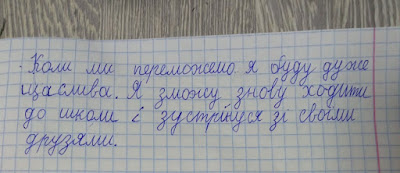 Коли ми переможемо я буду дуже
щаслива. Я зможу знову ходити
до школи і зустрінуся зі своїми
друзями.